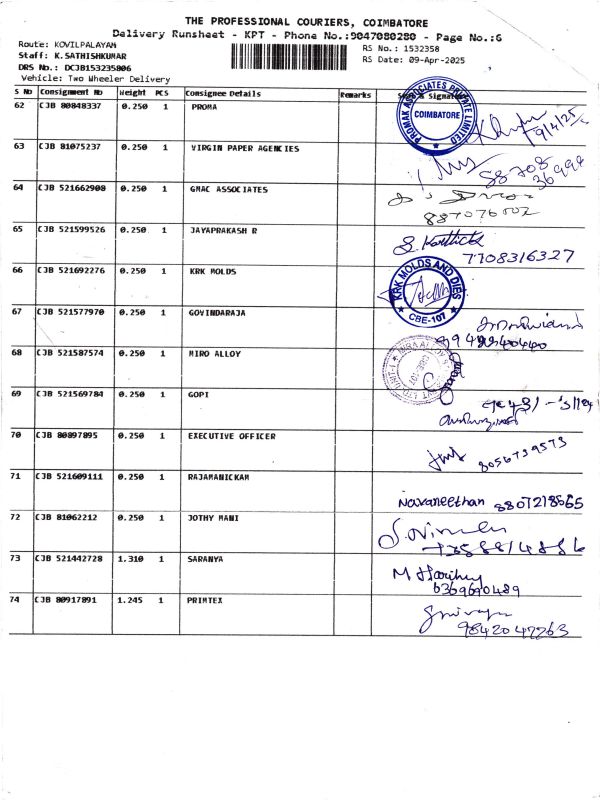 THE PROFESSIONAL COURIERS, COIMBATORE
Delivery Runsheet - KPT - Phone No.:9047080280 - Page No.:6
Route: KOVILPALAYAM
RS No.: 1532358
Staff: K.SATHISHKUMAR
RS Date: 09-Apr-2025
DRS No.: DCJB153235806
Vehicle: Two Wheeler Delivery
S No Consignment No Weight PCS Consignee Details Remarks
62 CJB 80848337 0.250 1 PROMA
PROMAK ASSOCIATES PRIVATE LIMITED
COIMBATORE
9/4/25
63 CJB 81075237 0.250 1 VIRGIN PAPER AGENCIES
88708
36999
64 CJB 521662908 0.250 1 GMAC ASSOCIATES
65 CJB 521599526 0.250 1 JAYAPRAKASH R
S. Karthick
7708316327
66 CJB 521692276 0.250 1 KRK MOLDS
KRK MOLDS AND DIES
CBE-107
67 CJB 521577970 0.250 1 GOVINDARAJA
68 CJB 521587574 0.250 1 MIRO ALLOY
69 CJB 521569784 0.250 1 GOPI
70 CJB 80897895 0.250 1 EXECUTIVE OFFICER
8056739573
71 CJB 521609111 0.250 1 RAJAMANICKAM
Navaneethan 8807218665
72 CJB 81062212 0.250 1 JOTHY MANI
73 CJB 521442728 1.310 1 SARANYA
6369690489
74 CJB 80917891 1.245 1 PRINTEX
9842047263